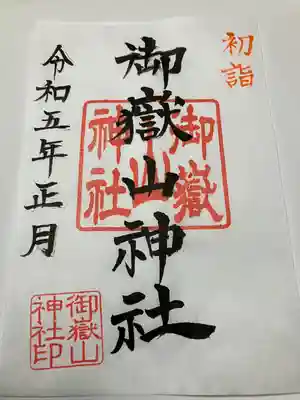 初詣
御嶽山神社
御嶽山
神社
令和五年正月
御嶽山
神社印